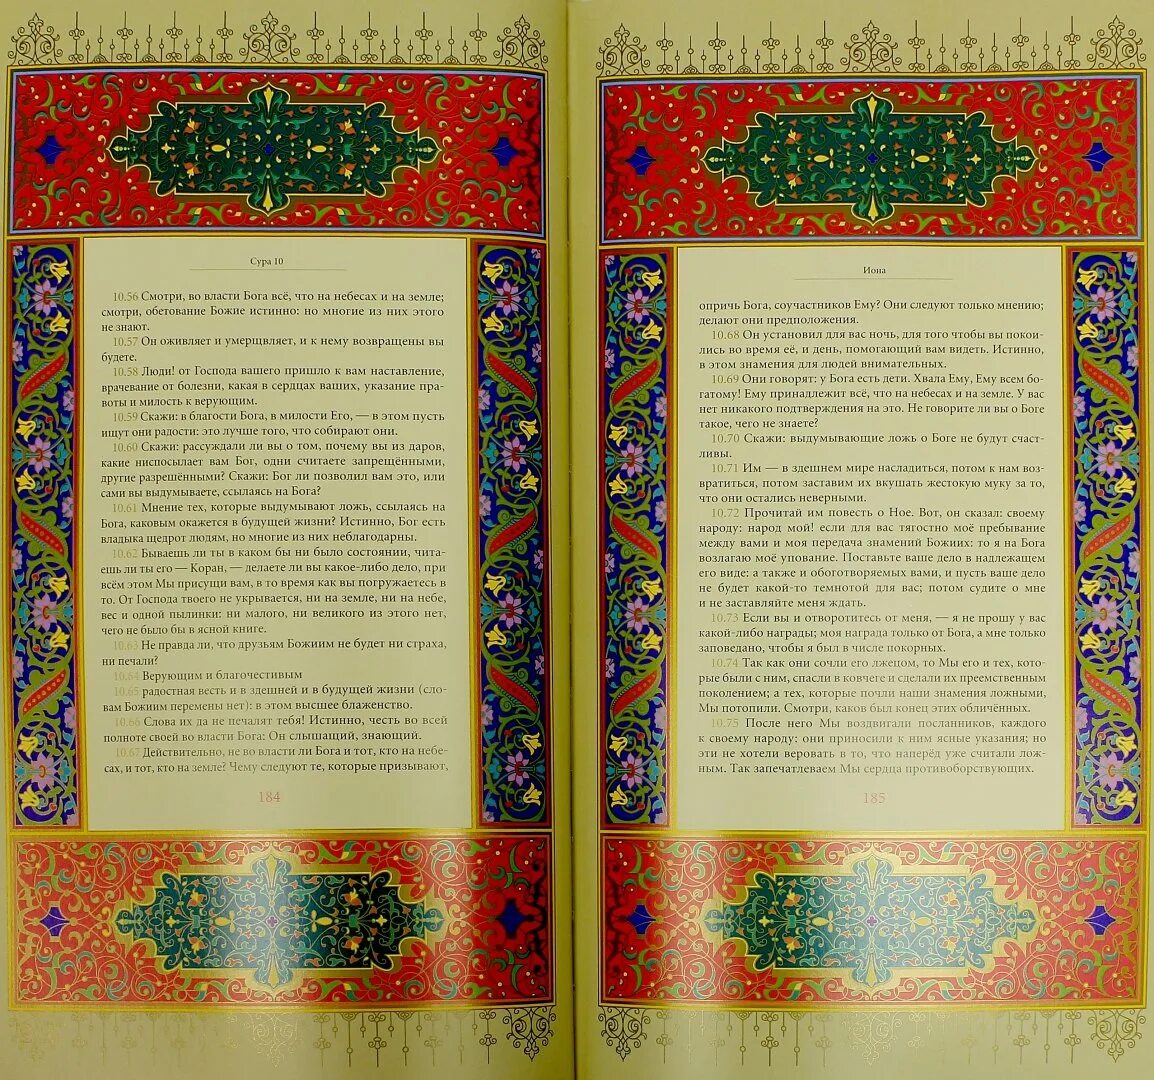 Сура 10
10.56 Смотри, во власти Бога всё, что на небесах и на земле;
смотри, обетование Божие истинно: но многие из них этого
не знают.
10.57 Он оживляет и умерщвляет, и к нему возвращены вы
будете.
10.58 Люди! от Господа вашего пришло к вам наставление,
врачевание от болезни, какая в сердцах ваших, указание пра-
воты и милость к верующим.
10.59 Скажи: в благости Бога, в милости Его, — в этом пусть
ищут они радости: это лучше того, что собирают они.
10.60 Скажи: рассуждали ли вы о том, почему вы из даров,
какие ниспосылает вам Бог, одни считаете запрещёнными,
другие разрешёнными? Скажи: Бог ли позволил вам это, или
сами вы выдумываете, ссылаясь на Бога?
10.61 Мнение тех, которые выдумывают ложь, ссылаясь на
Бога, каковым окажется в будущей жизни? Истинно, Бог есть
владыка щедрот людям, но многие из них неблагодарны.
10.62 Бываешь ли ты в каком бы ни было состоянии, читa-
ешь ли ты его — Коран, — делаете ли вы какое-либо дело, при
всём этом Мы присущи вам, в то время как вы погружаетесь в
то. От Господа твоего не укрывается, ни на земле, ни на небе,
вес и одной пылинки: ни малого, ни великого из этого нет,
чего не было бы в ясной книге.
10.63 Не правда ли, что друзьям Божиим не будет ни страха,
ни печали?
10.64 Верующим и благочестивым
10.65 радостная весть и в здешней и в будущей жизни (сло-
вам Божиим перемены нет): в этом высшее блаженство.
10.66 Слова их да не печалят тебя! Истинно, честь во всей
полноте своей во власти Бога: Он слышащий, знающий.
10.67 Действительно, не во власти ли Бога и тот, кто на небе-
сах, и тот, кто на земле? Чему следуют те, которые призывают,
184
Иона
опричь Бога, соучастников Ему? Они следуют только мнению;
делают они предположения.
10.68 Он установил для вас ночь, для того чтобы вы покои-
лись во время её, и день, помогающий вам видеть. Истинно,
в этом знамения для людей внимательных.
10.69 Они говорят: у Бога есть дети. Хвала Ему, Ему всем бо-
гатому! Ему принадлежит всё, что на небесах и на земле. У вас
нет никакого подтверждения на это. Не говорите ли вы о Боге
такое, чего не знаете?
10.70 Скажи: выдумывающие ложь о Боге не будут счаст-
ливы.
10.71 Им — в здешнем мире насладиться, потом к нам воз-
вратиться, потом заставим их вкушать жестокую муку за то,
что они остались неверными.
10.72 Прочитай им повесть о Ное. Вот, он сказал: своему
народу: народ мой! если для вас тягостно моё пребывание
между вами и моя передача знамений Божиих: то я на Бога
возлагаю моё упование. Поставьте ваше дело в надлежащем
его виде: а также и обоготворяемых вами, и пусть ваше дело
не будет какой-то темнотой для вас; потом судите о мне
и не заставляйте меня ждать.
10.73 Если вы и отворотитесь от меня, — я не прошу у вас
какой-либо награды; моя награда только от Бога, а мне только
заповедано, чтобы я был в числе покорных.
10.74 Так как они сочли его лжецом, то Мы его и тех, кото-
рые были с ним, спасли в ковчеге и сделали их преемственным
поколением; а тех, которые почли наши знамения ложными,
Мы потопили. Смотри, каков был конец этих обличённых.
10.75 После него Мы воздвигали посланников, каждого
к своему народу: они приносили к ним ясные указания; но
эти не хотели веровать в то, что наперёд уже считали лож-
ным. Так запечатлеваем Мы сердца противоборствующих.
185